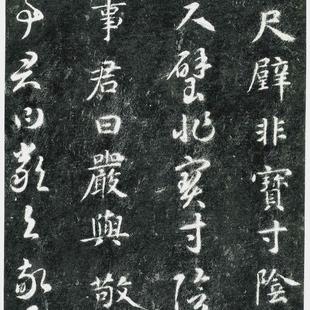 尺璧非寶寸陰
尺璧非寶寸陰
事君曰嚴與敬
事君曰嚴與敬